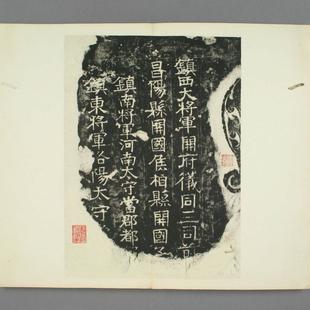 鎮西大将軍開府儀同三司前
昌陽縣開國侯相縣開國
鎮南将軍河南太守當郡都
鎮東将軍洛陽太守